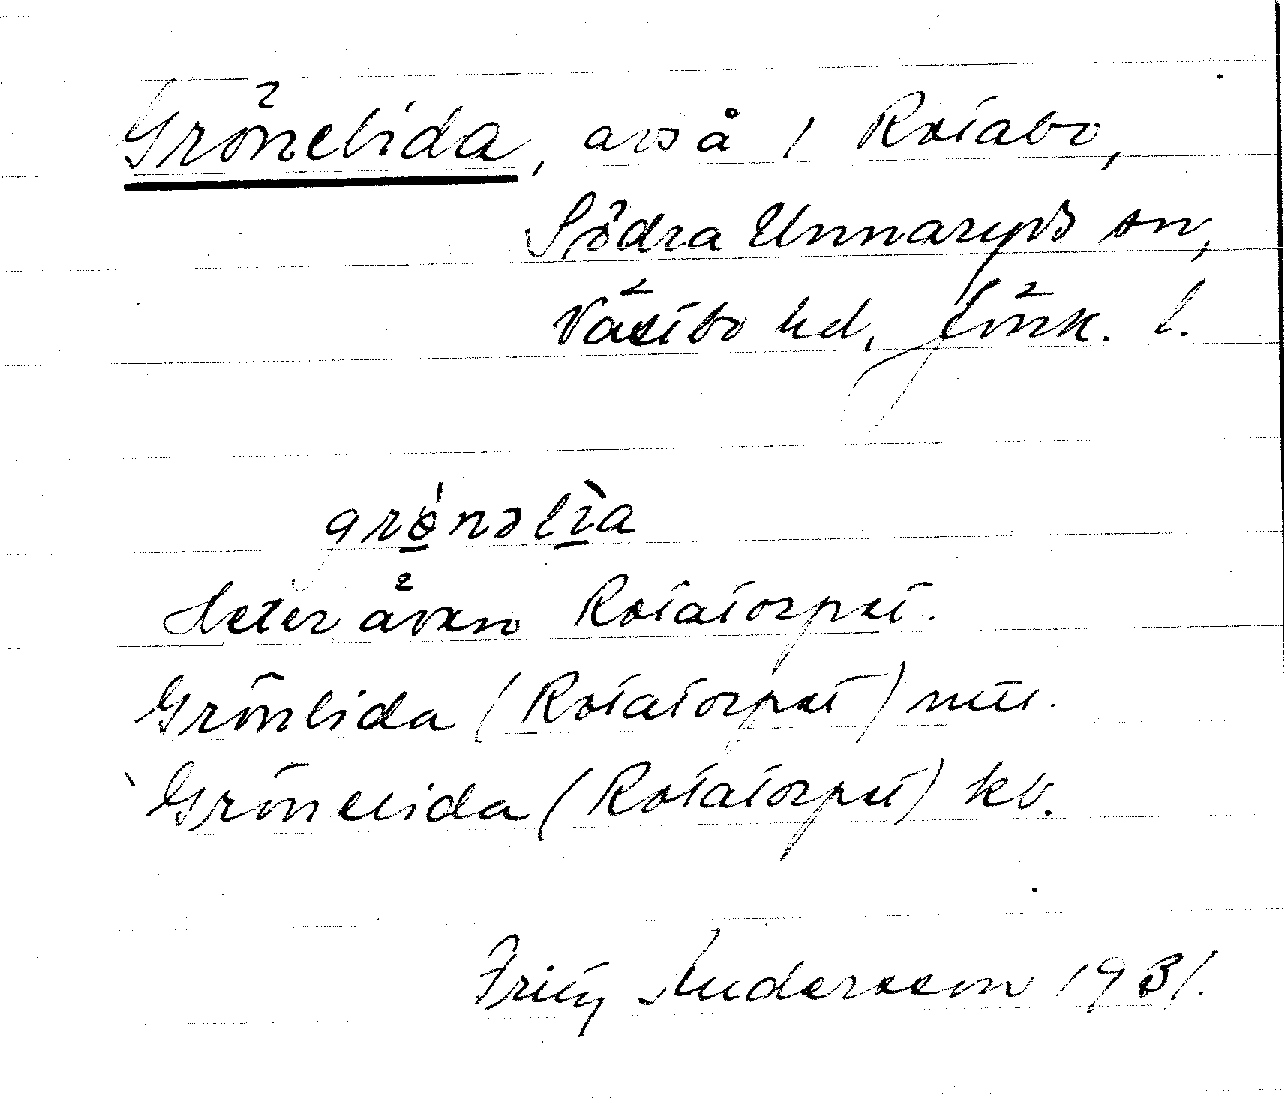 Grönelida, avs å 1 Rotabo,
Södra Unnaryds sn,
Västbo hd, Jönk. l.
grø̀nəlìa
Heter även Rotatorpet.
Grönlida (Rotatorpet)
Grönelida (Rotatorpet) kb.
Fritz Andersson 1931.